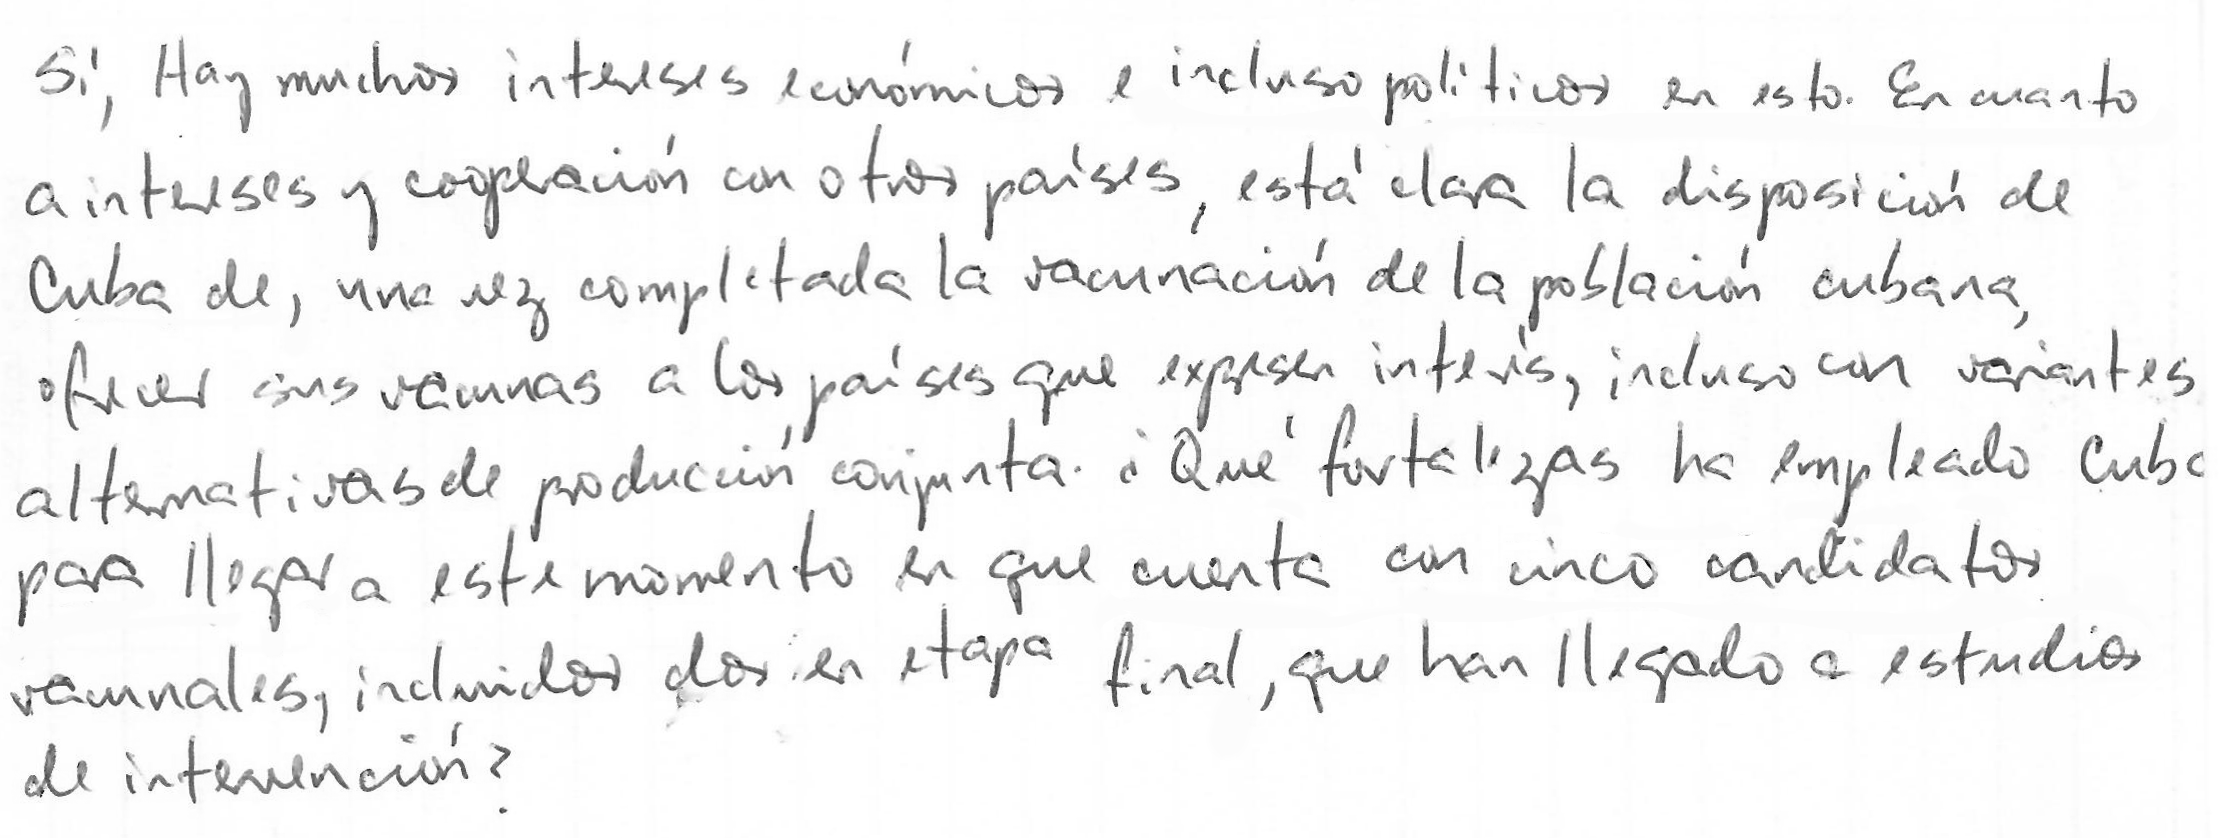 Sí, Hay muchos intereses económicos e incluso políticos en esto. En cuanto
a intereses y cooperación con otros países, está clara la disposición de
Cuba de, una vez completada la vacunación de la población cubana,
ofrecer sus vacunas a los países que expresen interés, incluso con variantes
alternativas de producción conjunta. ¿Qué fortalezas ha empleado Cuba
para llegar a este momento en que cuenta con cinco candidatos
vacunales, incluidos dos en etapa final, que han llegado a estudios
de intervención?